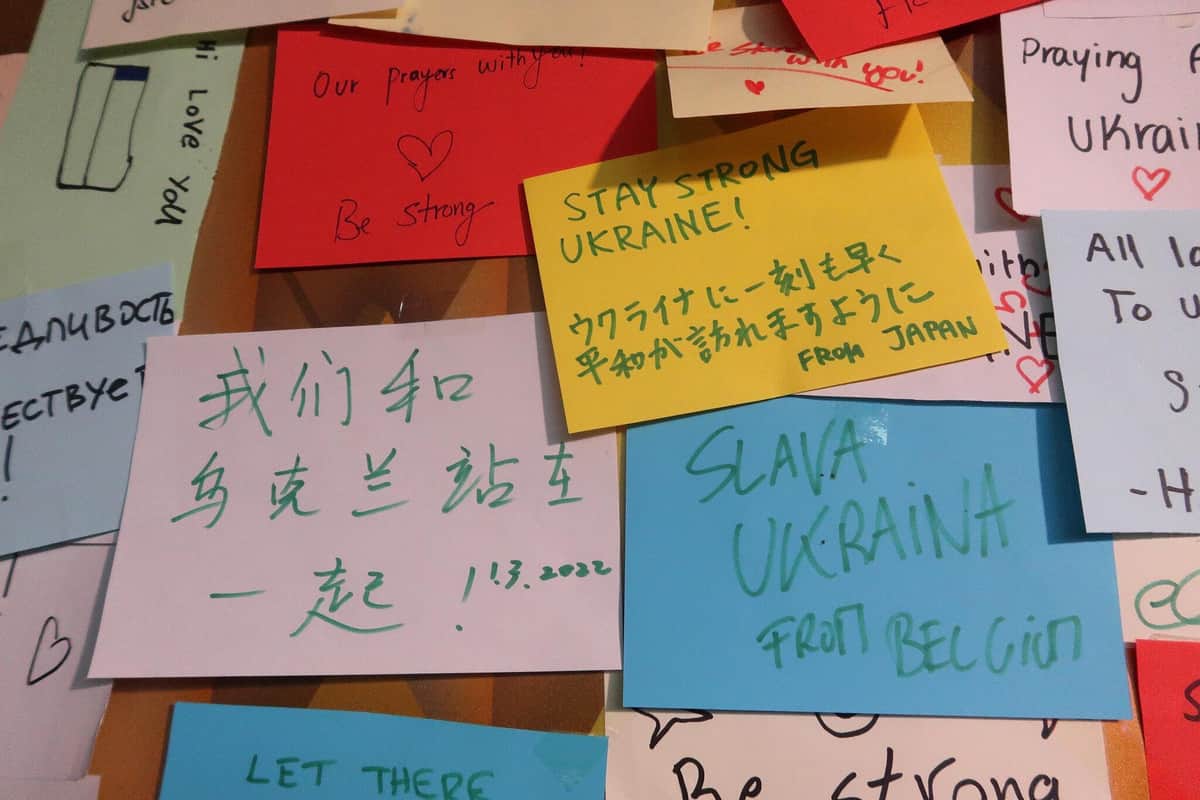 Hi Love You
Our Prayers with you!
Be strong
with you!
Praying
STAY STRONG
UKRAINE!
ウクライナに一刻も早く
平和が訪れますように
FROM JAPAN
All
To
我们和
乌克兰站在
一起!
1.3.2022
SLAVA
UKRAINA
FROM BELGIUM
LET THERE
Be strong